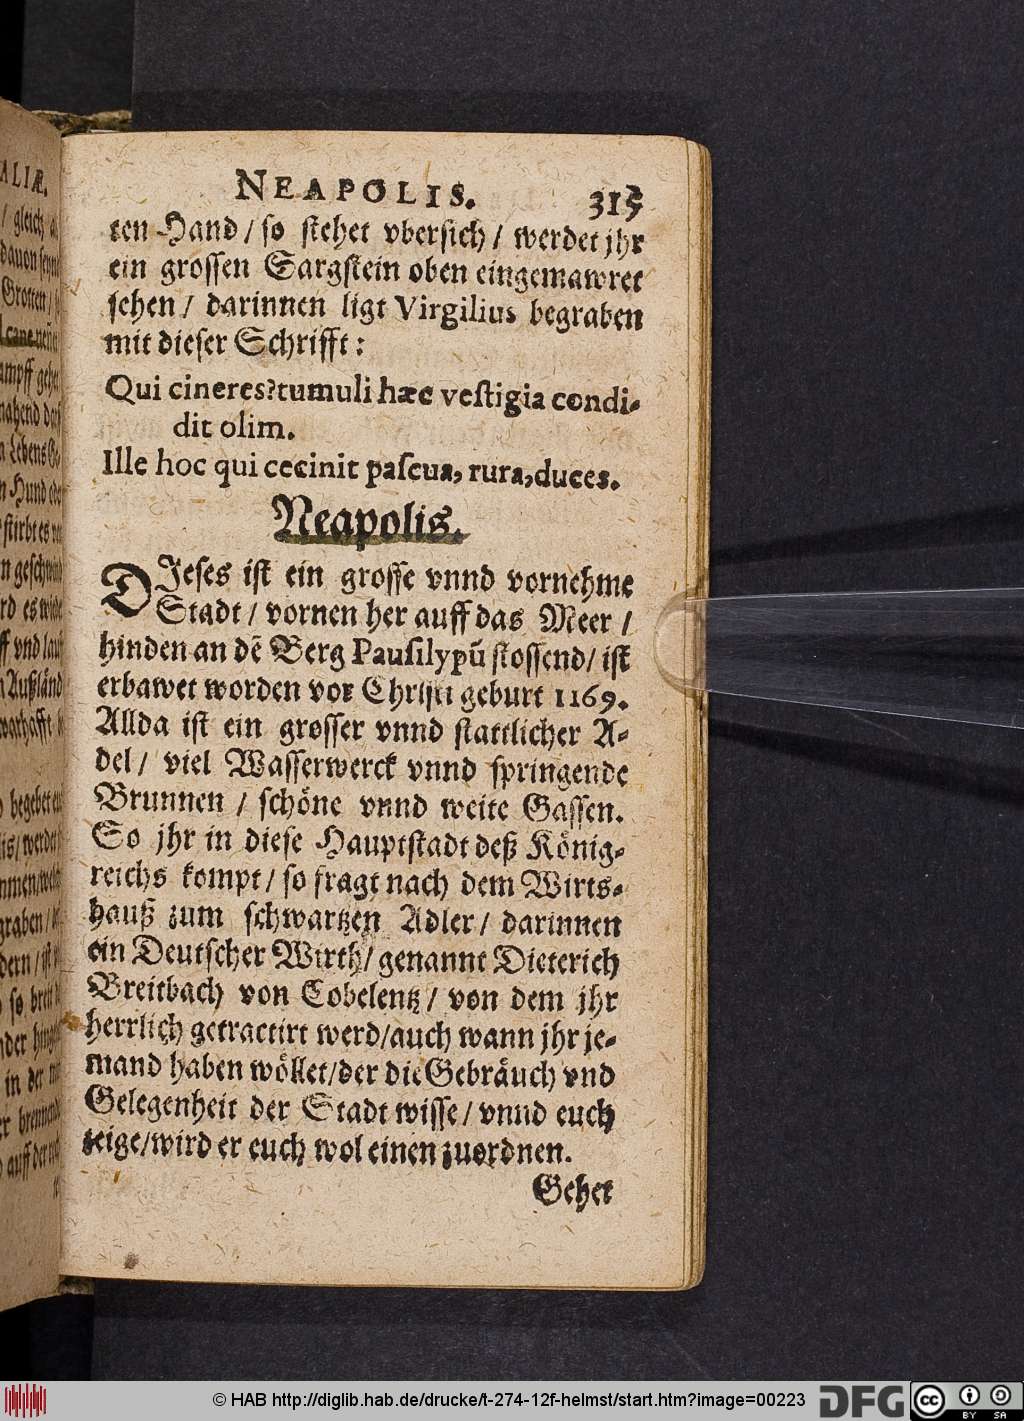 NEAPOLIS. 315
ten Hand / so stehet vbersich / werdet jhr
ein grossen Sargstein oben eingemawret
sehen / darinnen ligt Virgilius begraben
mit dieser Schrifft:
Qui cineres? tumuli hæc veſtigia condi-
dit olim.
Ille hoc qui cecinit paſcua, rura, duces.
Neapolis.
DIeses ist ein grosse vnnd vornehme
Stadt / vornen her auff das Meer /
hinden an dẽ Berg Pauſilypũ stossend / ist
erbawet worden vor Christi geburt 1169.
Allda ist ein grosser vnnd stattlicher A-
del / viel Wasserwerck vnnd springende
Brunnen / schöne vnnd weite Gassen.
So jhr in diese Hauptstadt deß König-
reichs kompt / so fragt nach dem Wirts-
hauß zum schwartzen Adler / darinnen
ein Deutscher Wirth / genannt Dieterich
Breitbach von Cobelentz / von dem jhr
herrlich getractirt werd / auch wann jhr je-
mand haben wöllet / der die Gebräuch vnd
Gelegenheit der Stadt wisse / vnnd euch
zeige / wird er euch wol einen zuordnen.
Gehet
ALIÆ.
/ gleich
davon
Grotten /
nahend
Hund
stirbt es
ff vnd
warhafft
begebet
in der
auff der
© HAB http://diglib.hab.de/drucke/t-274-12f-helmst/start.htm?image=00223
DFG
cc
BY SA